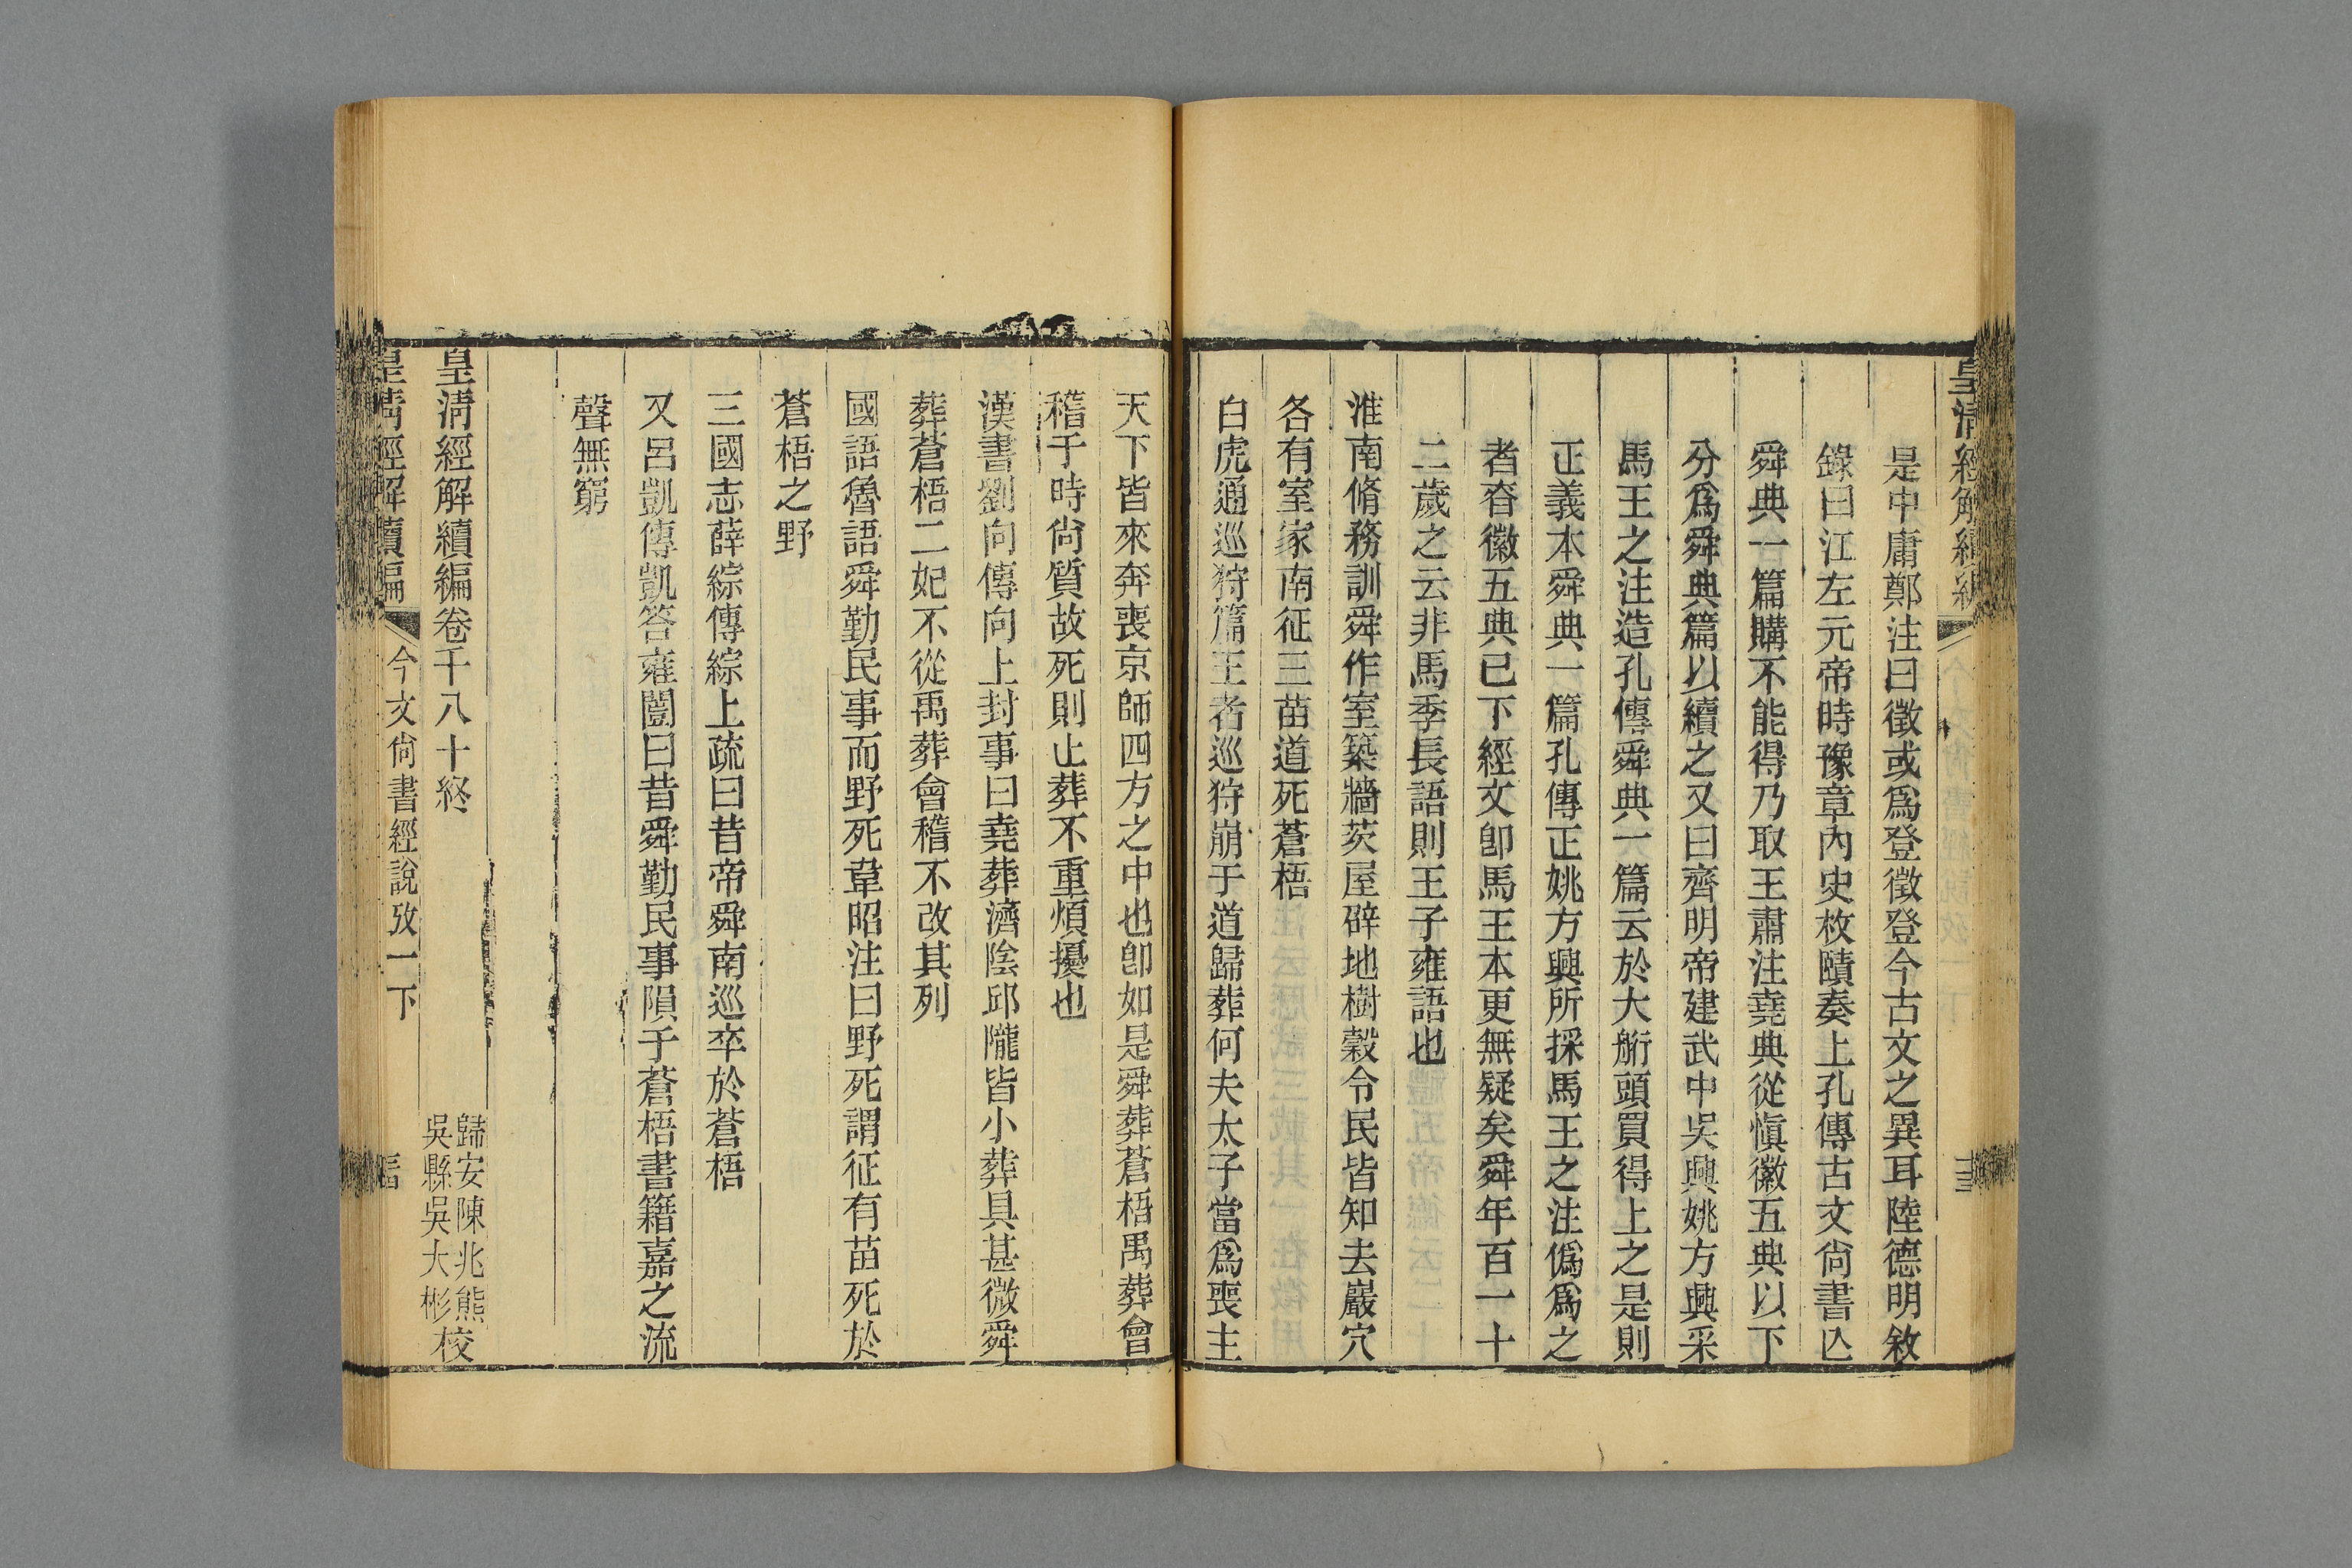 皇清經解續編
是中庸鄭注曰徵或爲登徵登今古文之異耳陸德明敘
錄曰江左元帝時豫章內史枚賾奏上孔傳古文尙書亾
舜典一篇購不能得乃取王肅注堯典從愼徽五典以下
分爲舜典篇以續之又曰齊明帝建武中吳興姚方興采
馬王之注造孔傳舜典一篇云於大斻頭買得上之是則
正義本舜典一篇孔傳正姚方興所採馬王之注僞爲之
者昚徽五典已下經文卽馬王本更無疑矣舜年百一十
二歲之云非馬季長語則王子雍語也
淮南脩務訓舜作室築牆茨屋辟地樹穀令民皆知去巖穴
各有室家南征三苗道死蒼梧
白虎通巡狩篇王者巡狩崩于道歸葬何夫太子當爲喪主
天下皆來奔喪京師四方之中也卽如是舜葬蒼梧禹葬會
稽于時尙質故死則止葬不重煩擾也
漢書劉向傳向上封事曰堯葬濟陰邱隴皆小葬具甚微舜
葬蒼梧二妃不從禹葬會稽不改其列
國語魯語舜勤民事而野死韋昭注曰野死謂征有苗死於
蒼梧之野
三國志薛綜傳綜上疏曰昔帝舜南巡卒於蒼梧
又呂凱傳凱答雍闓曰昔舜勤民事隕于蒼梧書籍嘉之流
聲無窮
皇清經解續編卷千八十終
歸安陳兆熊
吳縣吳大彬
校
皇清經解續編
今文尙書經說攷一下